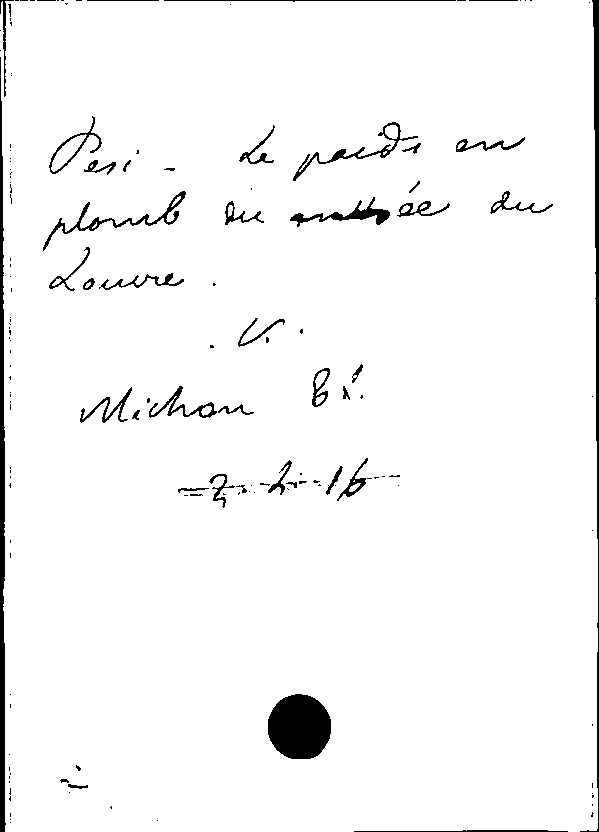 Pesi - Le poids en
plomb du musée du
Louvre.
. V. .
Michon Et.
2. 2. 16